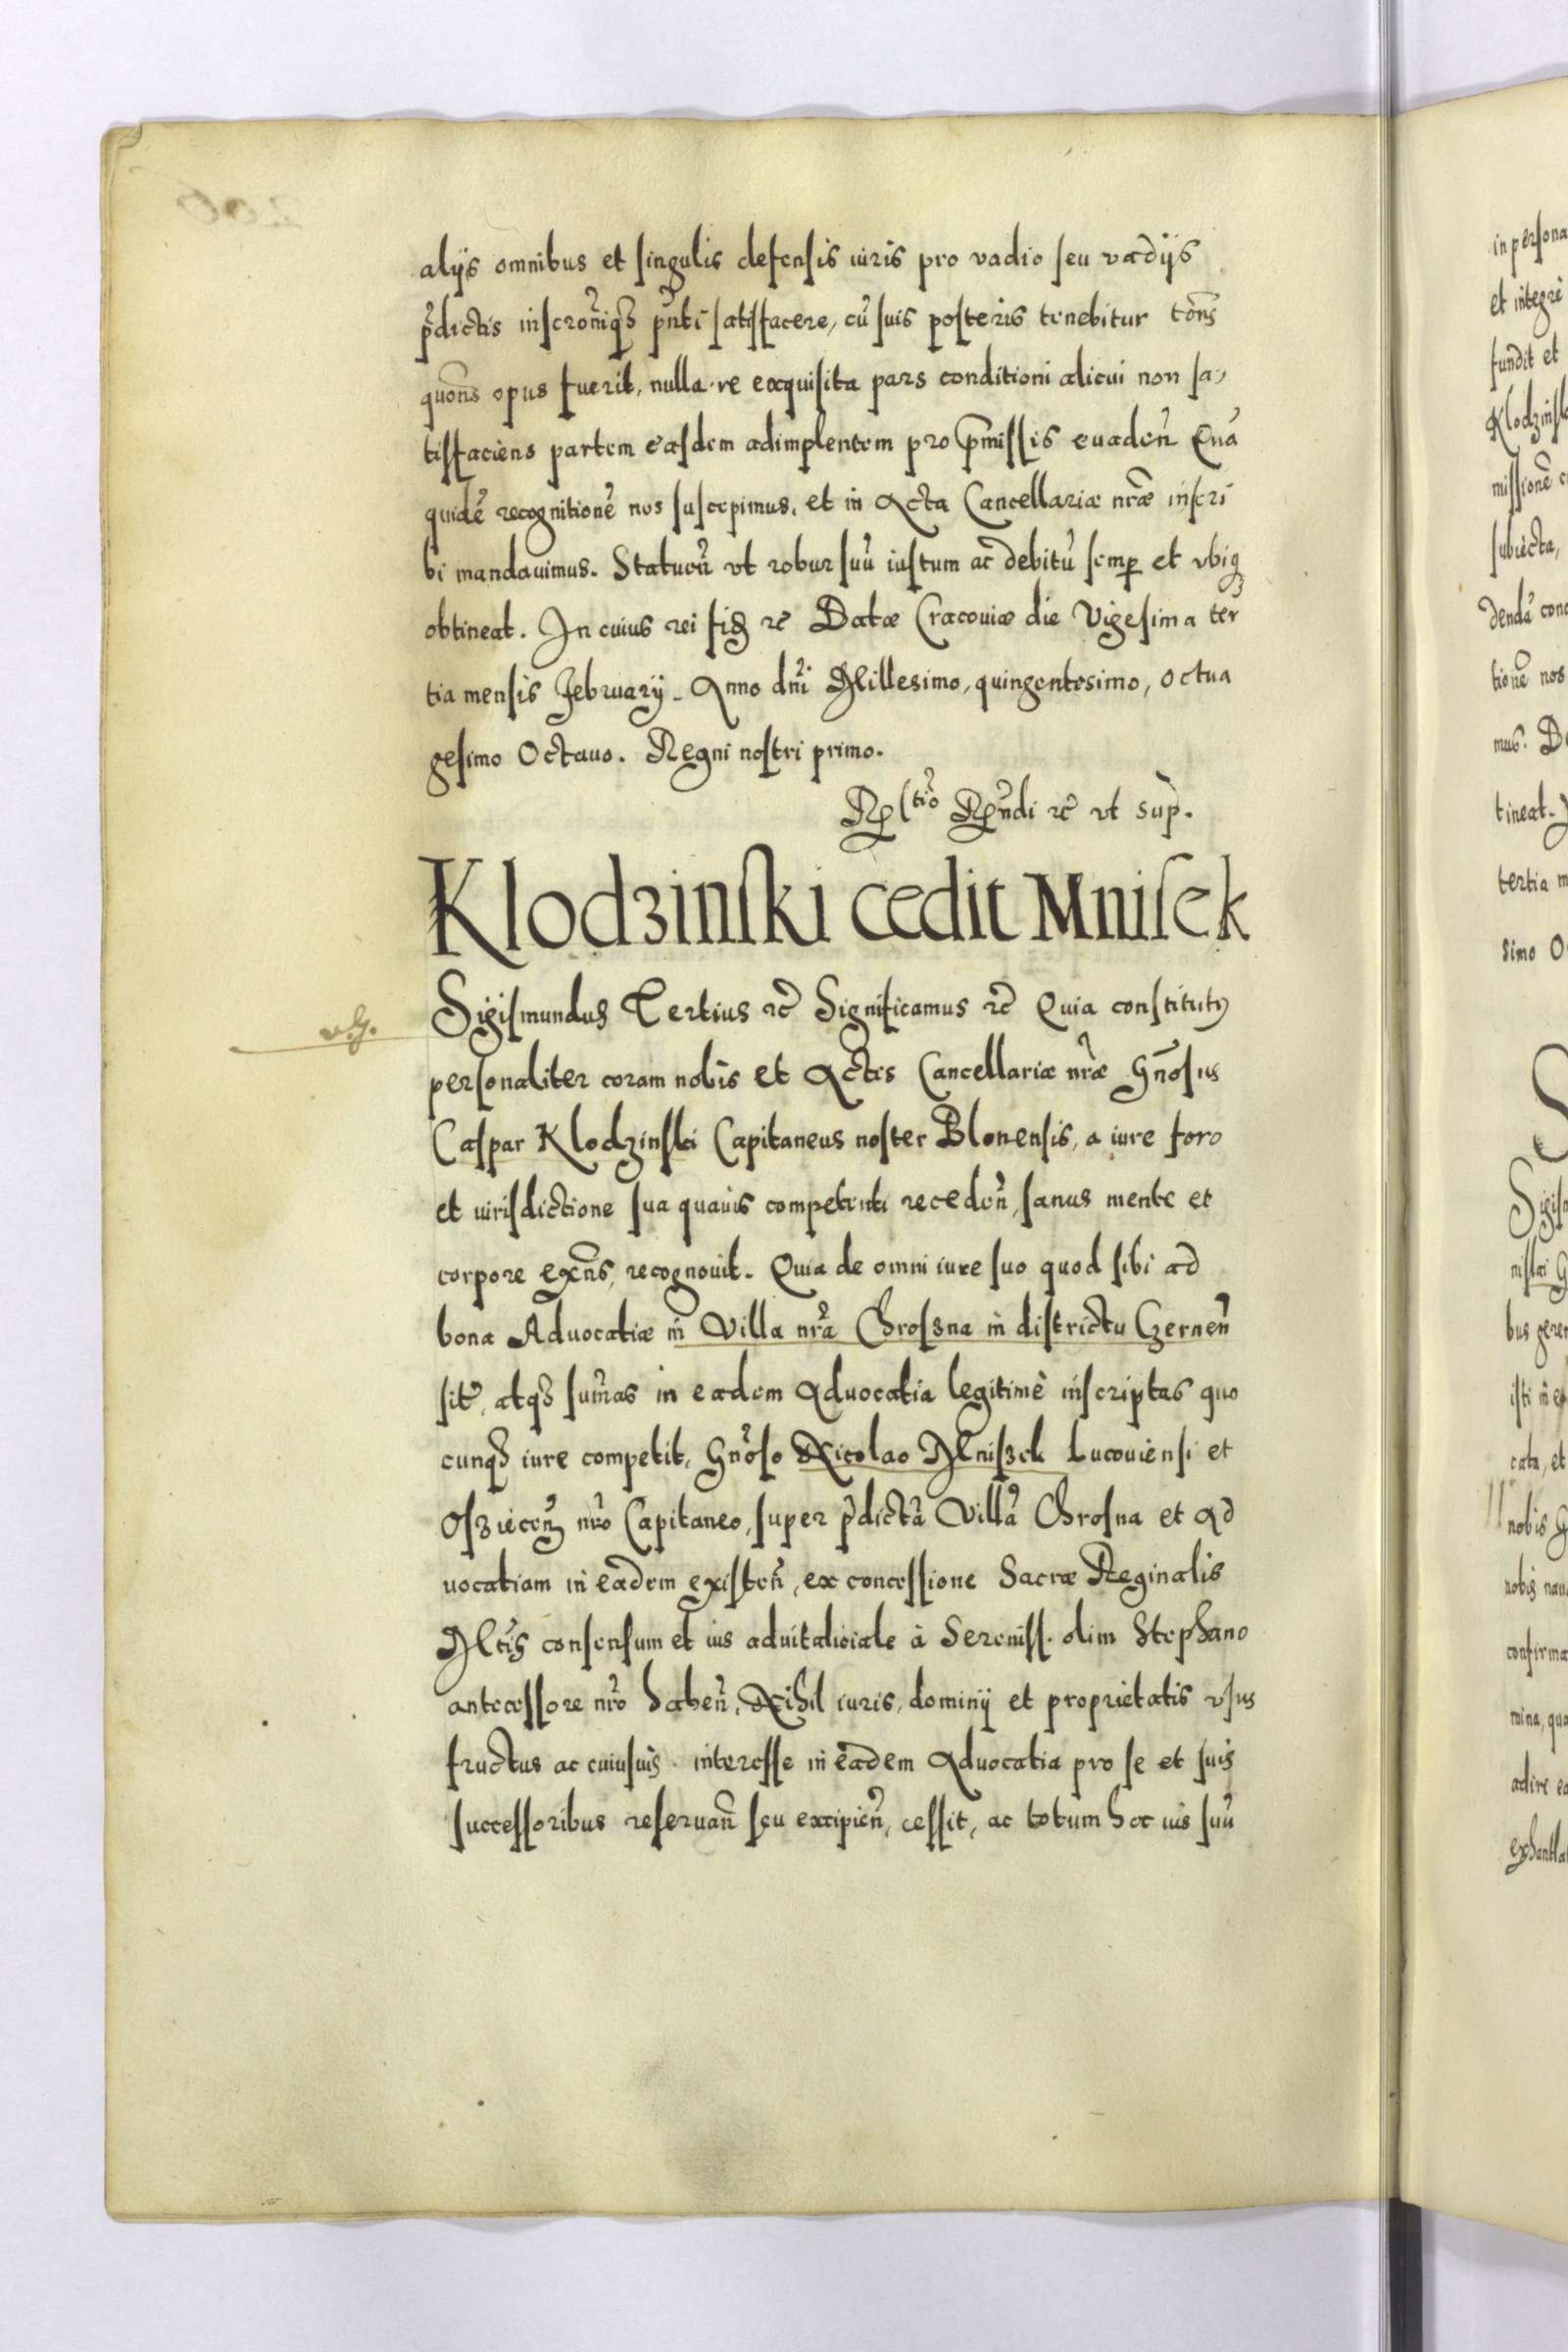 alijs omnibus et singulis defensis iuris pro vadio seu vadijs
p̃dictis inscroñiq₃ p̃nti satisfacere, cũ suis posteris tenebitur tõns
quõns opus fuerit, nulla re exquisita pars conditioni alicui non sa,
tisfaciens partem easdem adimplentem pro p̃missis euadeñ Quã
quidẽ recognitionẽ nos suscepimus, et in Acta Cancellariæ nr̃æ inscri
bi mandauimus. Statueñ vt robur suũ iustum ac debitũ semp et vbiq₃
obtineat. In cuius rei fid rc̃ Datæ Cracouiæ die Vigesima ter
tia mensis February. Anno dñi Millesimo, quingentesimo, octua
gesimo Octauo. Regni nostri primo.
Rltiõ Rñdi rc̃ vt sup.
Klodzinski cedit Mnisek
Sigismundus Tertius rc̃ Significamus rc̃ Quia constitutꝯ
personaliter coram nobis et Actis Cancellariæ nr̃æ Gñosus
Caspar Klodzinski Capitaneus noster Blonensis, a iure foro
et iurisdictione sua quauis competenti recedeñ, sanus mente et
corpore exñs, recognouit. Quia de omni iure suo quod sibi ad
bona Aduocatiæ in Villa nr̃a Chrosna in districtu Czerneñ
sit̃, atq₃ sum̃as in eadem Aduocatia legitimè inscriptas quo
cunq₃ iure competit, Gñoso Nicolao Mniszek Lucouiensi et
Osziecem̃ nr̃o Capitaneo, super p̃dictã Villã Chrosna et Ad
uocatiam in eadem existeñ, ex concessione Sacræ Reginalis
Mtis consensum et ius aduitaliciale à Sereniss. olim Stephano
antecessore nr̃o habeñ, Nihil iuris, dominij et proprietatis vsus
fructus ac cuiusuis interesse in eadem Aduocatia pro se et suis
successoribus reseruañ seu excipieñ, cessit, ac totum hoc ius suũ